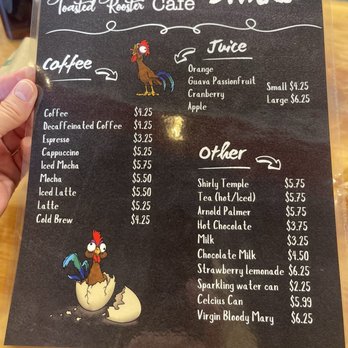 Toasted Rooster Cafe
Coffee
Coffee $4.25
Decaffeinated Coffee $4.25
Espresso $3.25
Cappuccino $5.25
Iced Mocha $5.75
Mocha $5.50
Iced Latte $5.50
Latte $5.25
Cold Brew $4.25
Juice
Orange
Guava Passionfruit
Cranberry
Apple
Small $4.25
Large $6.25
Other
Shirly Temple $5.75
Tea (hot/Iced) $5.75
Arnold Palmer $5.75
Hot Chocolate $3.75
Milk $3.25
Chocolate Milk $4.50
Strawberry lemonade $6.25
Sparkling water can $2.25
Celcius Can $5.99
Virgin Bloody Mary $6.25